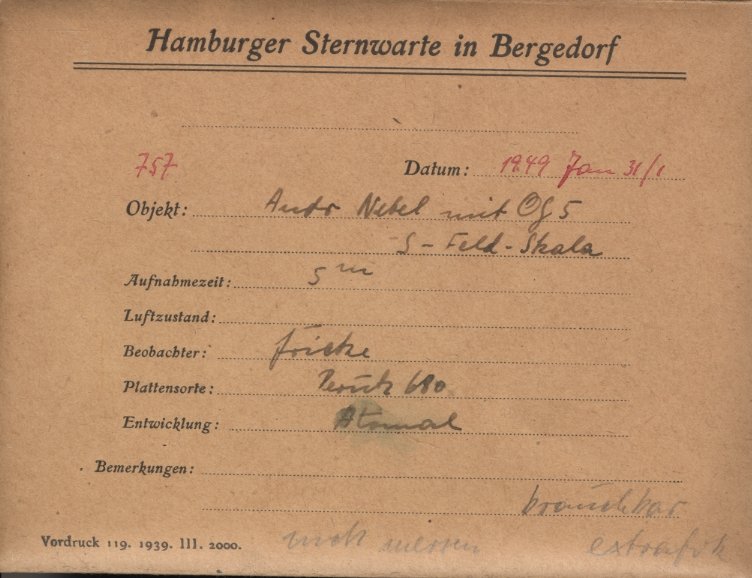 Hamburger Sternwarte in Bergedorf
757 Datum: 1949 Jan 31/1
Objekt: Andr Nebel mit OG 5
S-Feld-Skala
Aufnahmezeit: 5 m
Luftzustand:
Beobachter: Fricke
Plattensorte: Perutz 680
Entwicklung: Atomal
Bemerkungen:
brauchbar
Vordruck 119. 1939. III. 2000. messen